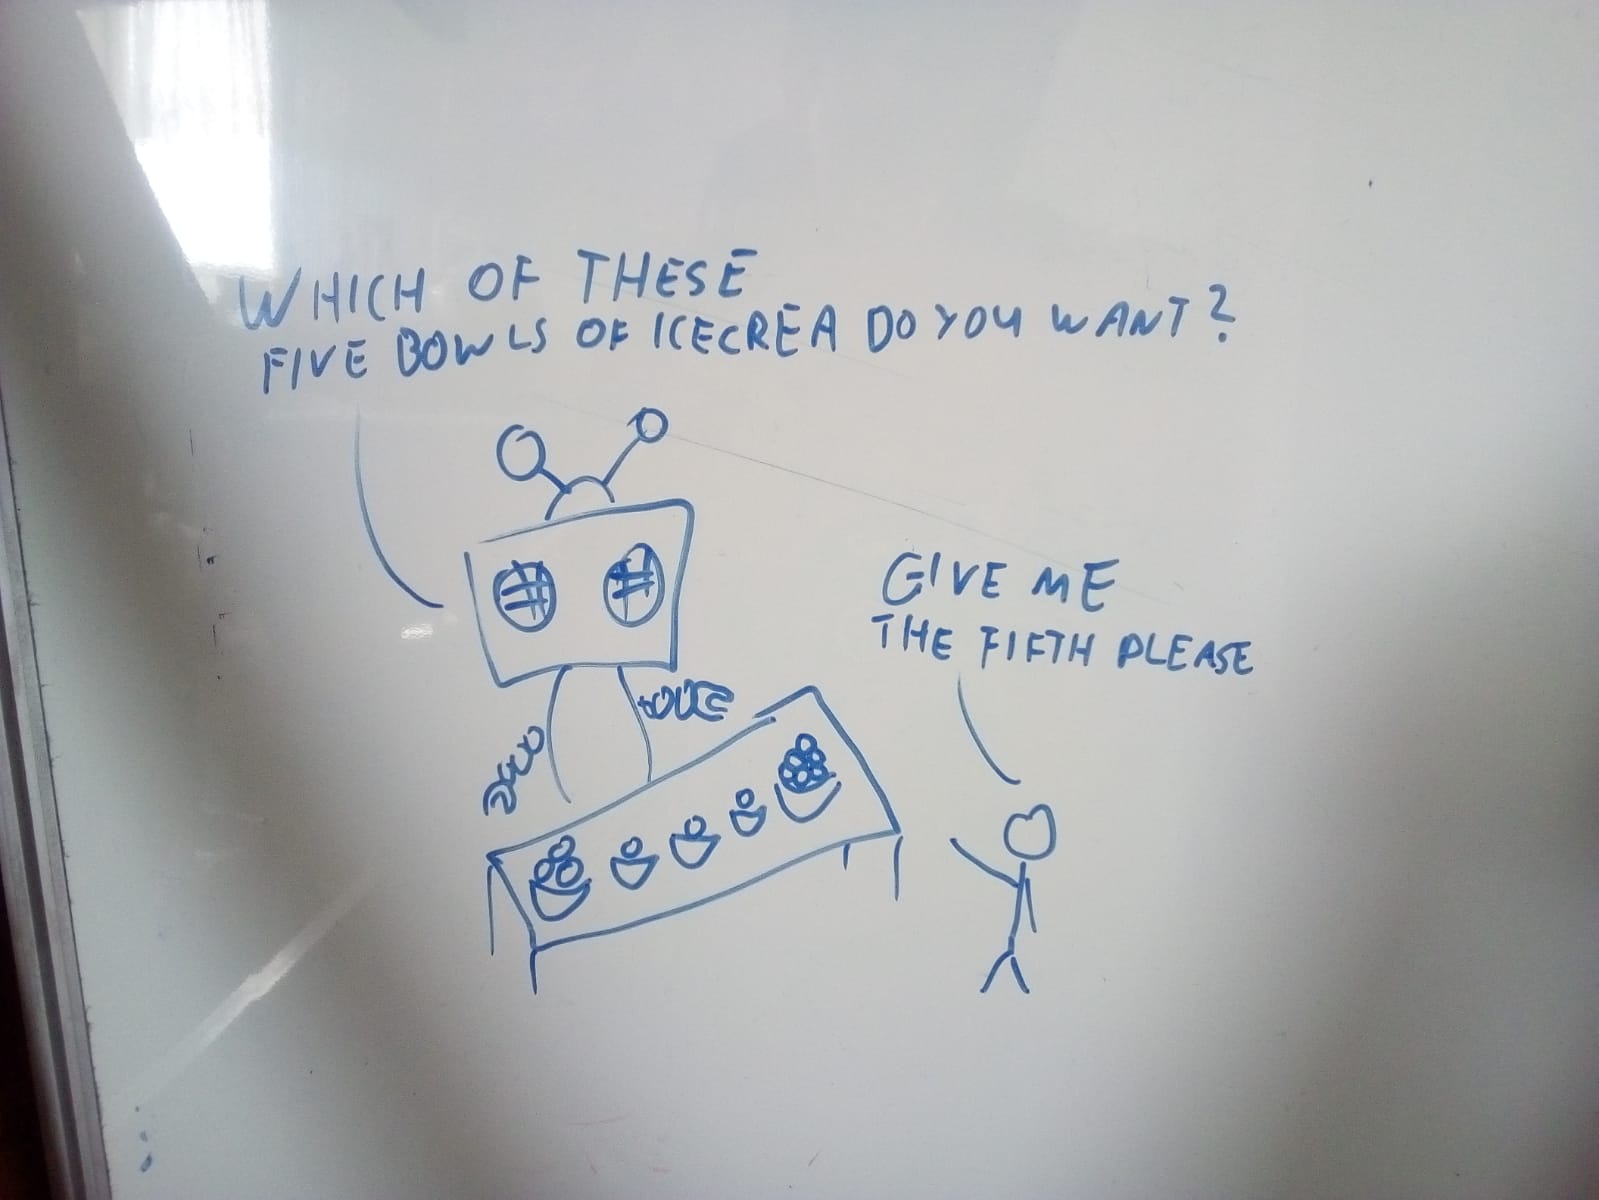 WHICH OF THESE
FIVE BOWLS OF ICECREA DO YOU WANT?
GIVE ME
THE FIFTH PLEASE